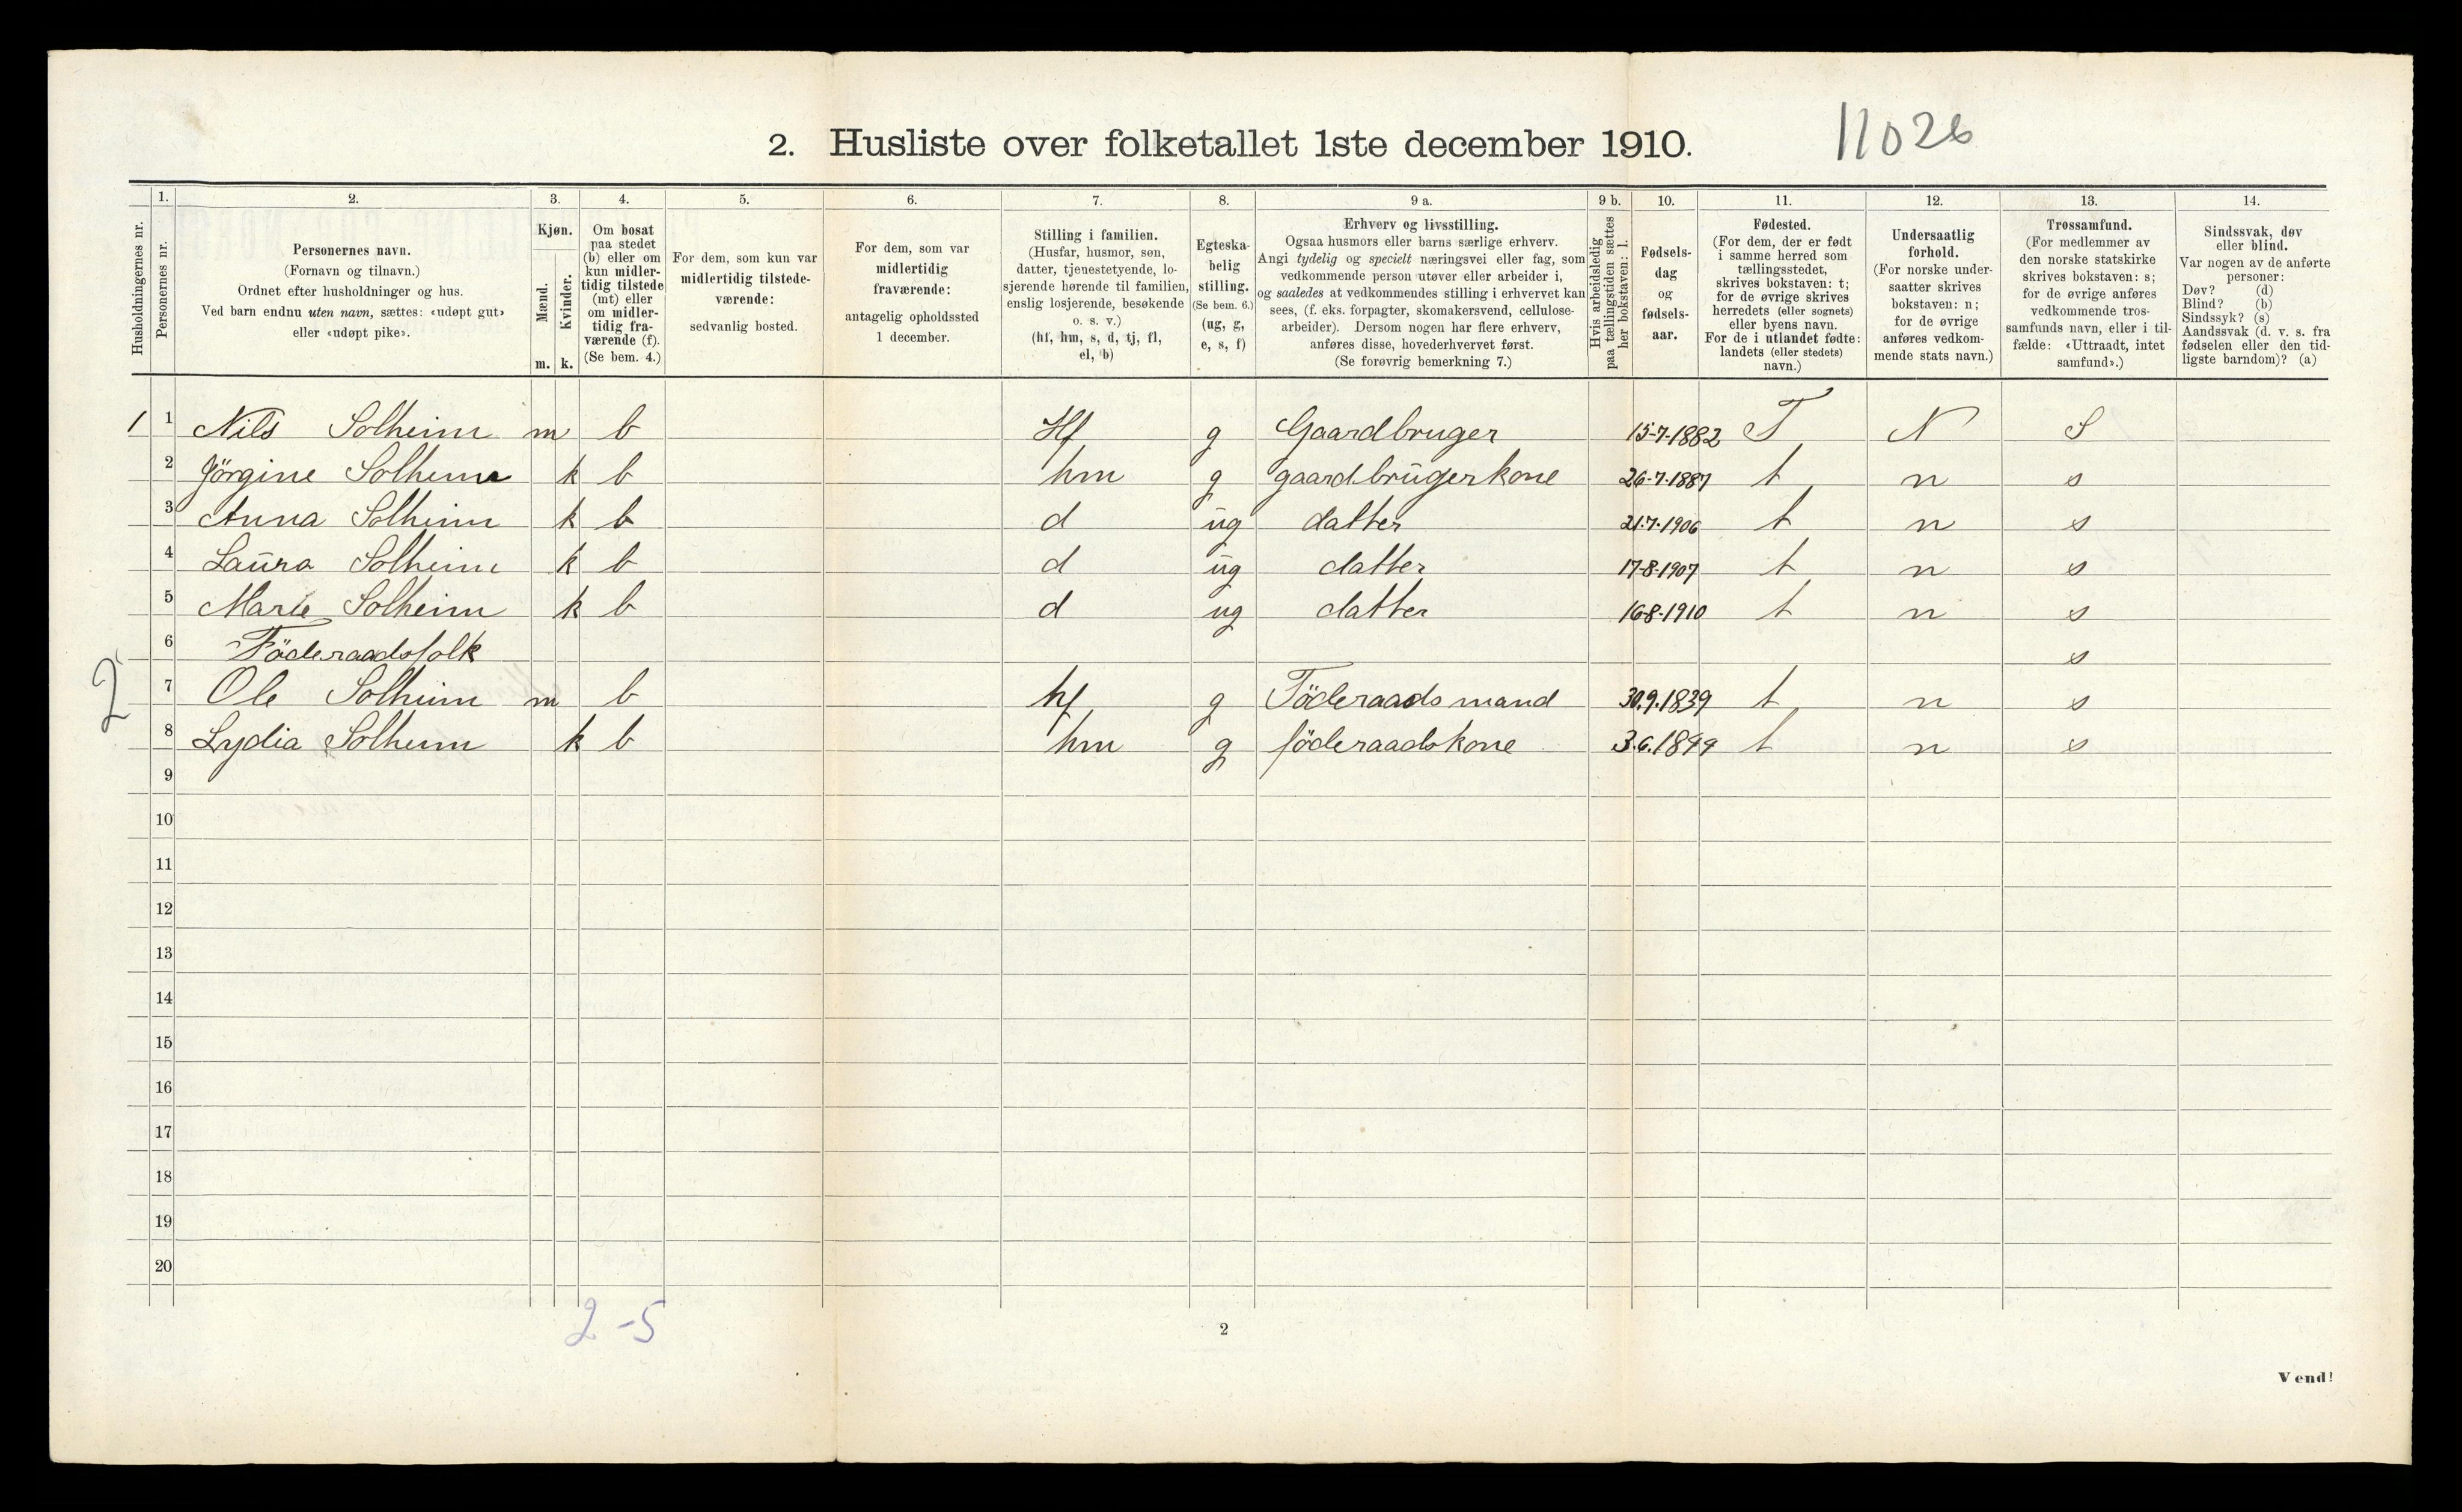 2. Husliste over folketallet 1ste december 1910.
11026
Husholdningernes nr.
1.
Personernes nr.
2.
Personernes navn.
(Fornavn og tilnavn.)
Ordnet efter husholdninger og hus.
Ved barn endnu uten navn, sættes: «udøpt gut»
eller «udøpt pike».
3.
Kjøn.
Mænd.
Kvinder.
m. k.
4.
Om bosat
paa stedet
(b) eller om
kun midler-
tidig tilstede
(mt) eller
om midler-
tidig fra-
værende (f).
(Se bem. 4.)
5.
For dem, som kun var
midlertidig tilstede-
værende:
sedvanlig bosted.
6.
For dem, som var
midlertidig
fraværende:
antagelig opholdssted
1 december.
7.
Stilling i familien.
(Husfar, husmor, søn,
datter, tjenestetyende, lo-
sjerende hørende til familien,
enslig losjerende, besøkende
o. s. v.)
(hf, hm, s, d, tj, fl,
el, b)
8.
Egteska-
belig
stilling.
(Se bem. 6.)
(ug, g,
e, s, f)
9 a.
Erhverv og livsstilling.
Ogsaa husmors eller barns særlige erhverv.
Angi tydelig og specielt næringsvei eller fag, som
vedkommende person utøver eller arbeider i,
og saaledes at vedkommendes stilling i erhvervet kan
sees, (f. eks. forpagter, skomakersvend, cellulose-
arbeider). Dersom nogen har flere erhverv,
anføres disse, hovederhvervet først.
(Se forøvrig bemerkning 7.)
9 b.
Hvis arbeidsledig
paa tællingstiden sættes
her bokstaven: l.
10.
Fødsels-
dag
og
fødsels-
aar.
11.
Fødested.
(For dem, der er født
i samme herred som
tællingsstedet,
skrives bokstaven: t;
for de øvrige skrives
herredets (eller sognets)
eller byens navn.
For de i utlandet fødte:
landets (eller stedets)
navn.)
12.
Undersaatlig
forhold.
(For norske under-
saatter skrives
bokstaven: n;
for de øvrige
anføres vedkom-
mende stats navn.)
13.
Trossamfund.
(For medlemmer av
den norske statskirke
skrives bokstaven: s;
for de øvrige anføres
vedkommende tros-
samfunds navn, eller i til-
fælde: «Uttraadt, intet
samfund».)
14.
Sindssvak, døv
eller blind.
Var nogen av de anførte
personer:
Døv? (d)
Blind? (b)
Sindssyk? (s)
Aandssvak (d. v. s. fra
fødselen eller den tid-
ligste barndom)? (a)
1 1 Nils Solheim m b Hf g Gaardbruger 15-7-1882 T N S
2 Jörgine Solheim k b hm g gaardbrugerkone 26-7-1887 t n s
3 Anna Solheim k b d ug datter 21-7-1906 t n s
4 Laura Solheim k b d ug datter 17-8-1907 t n s
5 Marie Solheim k b d ug datter 16-8-1910 t n s
6 Föderaadsfolk s
2 7 Ole Solheim m b hf g Föderaadsmand 30.9.1839 t n s
8 Lydia Solheim k b hm g föderaadskone 3.6.1899 t n s
9
10
11
12
13
14
15
16
17
18
19
20
2-5
2
Vend!